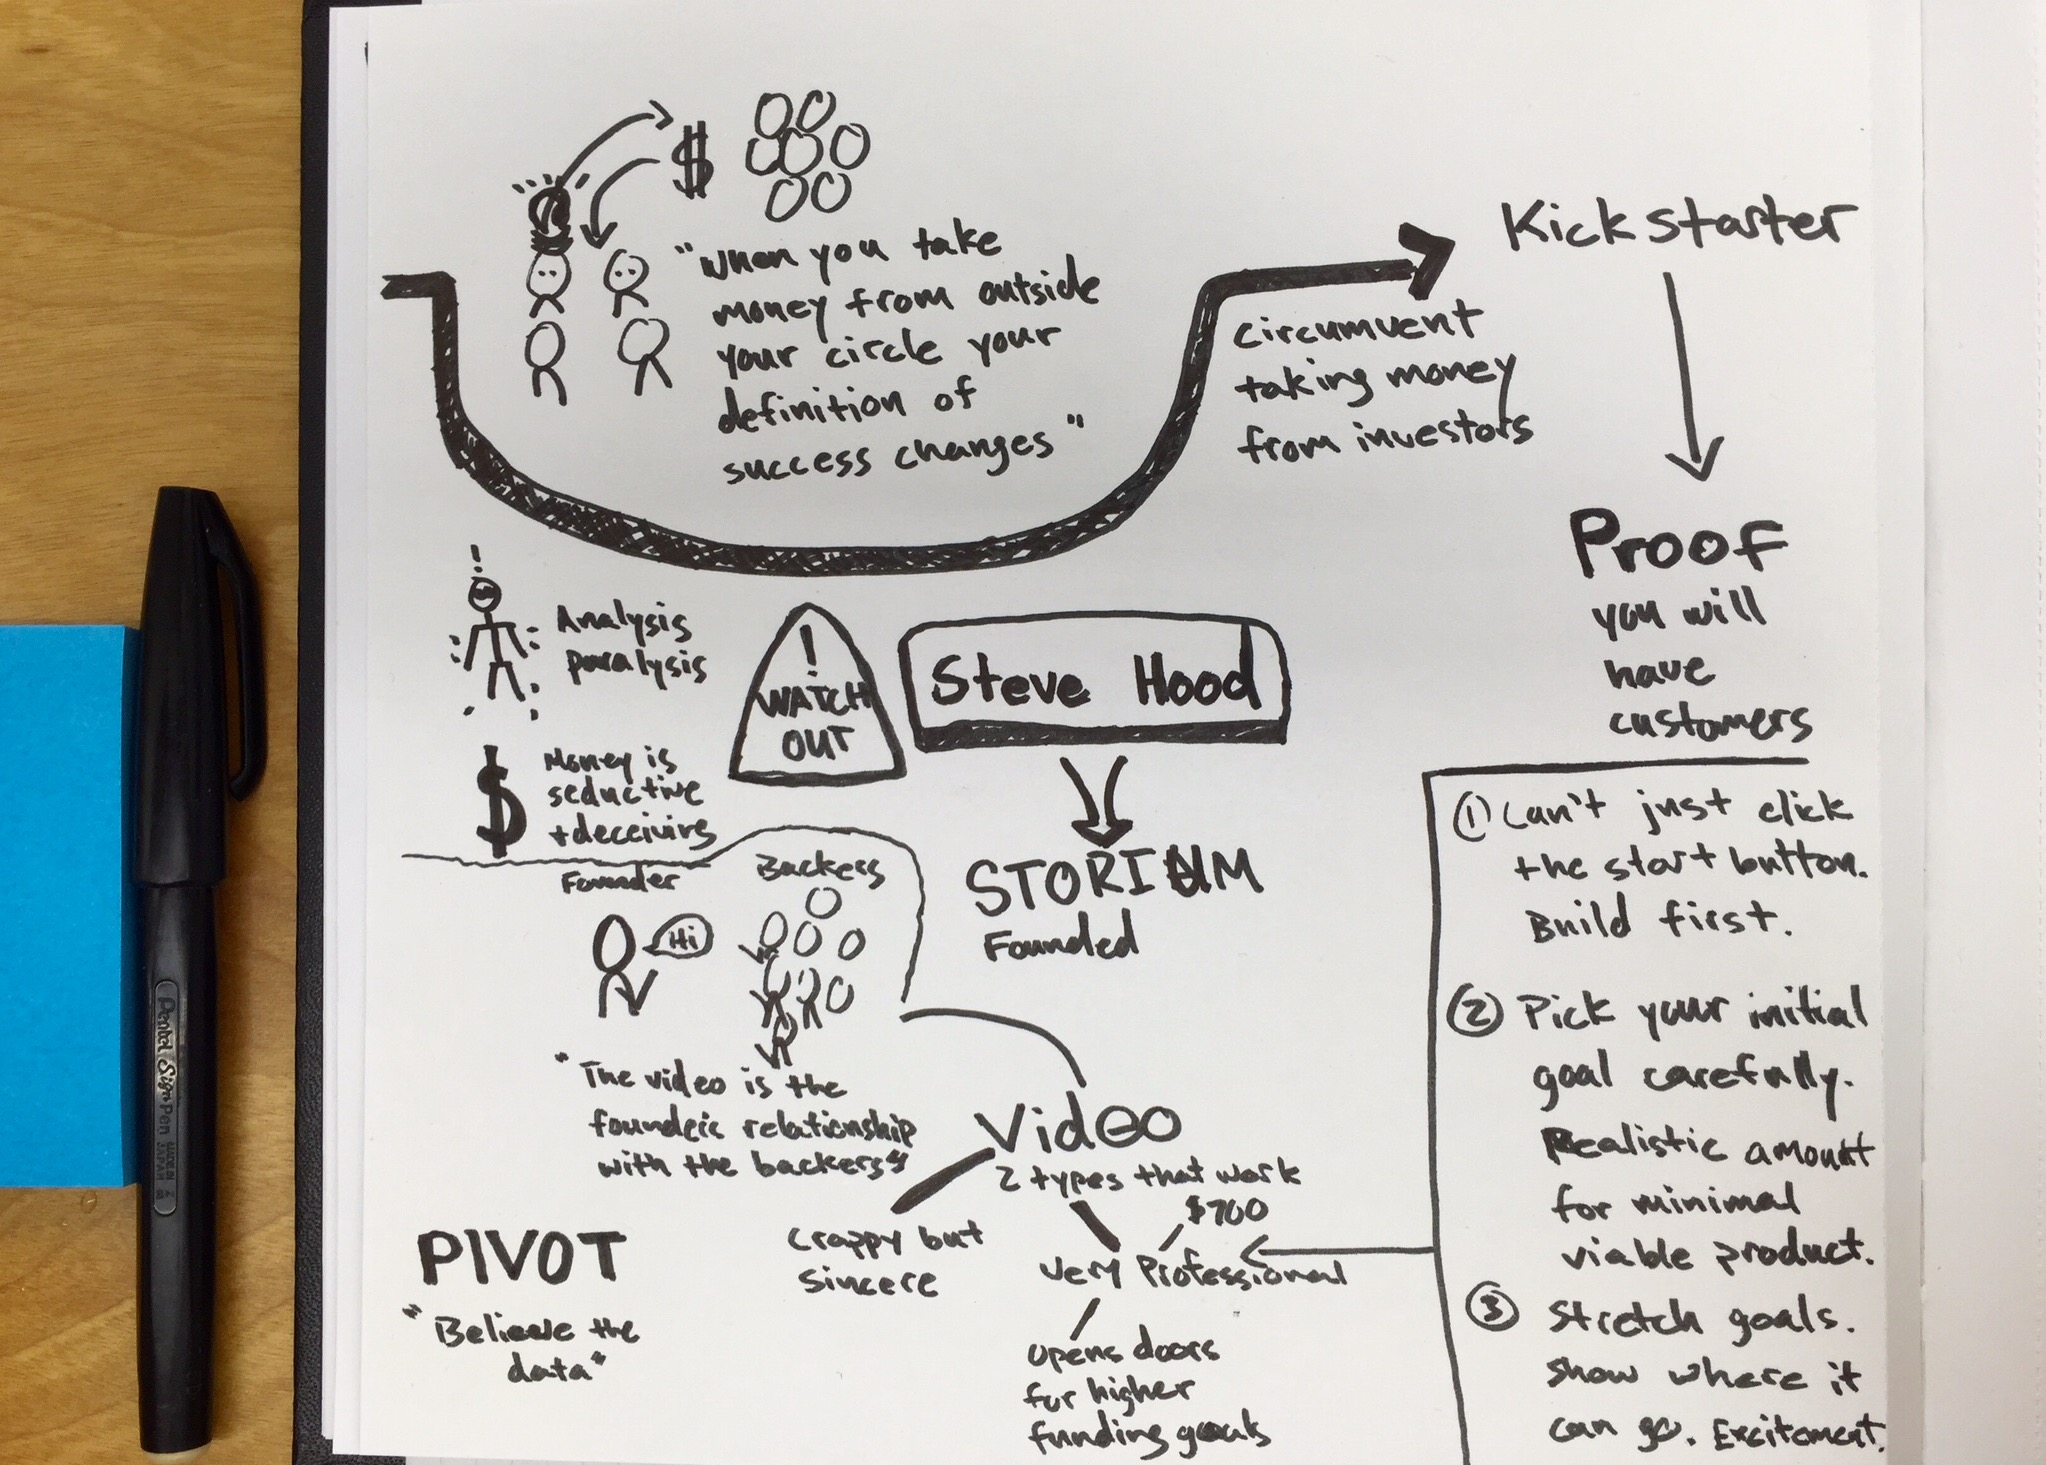 $
"When you take
money from outside
your circle your
definition of
success changes"
circumvent
taking money
from investors
Kickstarter
Proof
you will
have
customers
!
Analysis
paralysis
$
Money is
seductive
+deceiving
!
WATCH
OUT
Steve Hood
Founded
Founder
Hi
Backers
"The video is the
founder's relationship
with the backers"
Video
2 types that work
crappy but
sincere
$700
very Professional
opens doors
for higher
funding goals
PIVOT
"Believe the
data"
① Can't just click
the start button.
Build first.
② Pick your initial
goal carefully.
Realistic amount
for minimal
viable product.
③ Stretch goals.
show where it
can go. Excitement.
Pentel Sign Pen
JAPAN